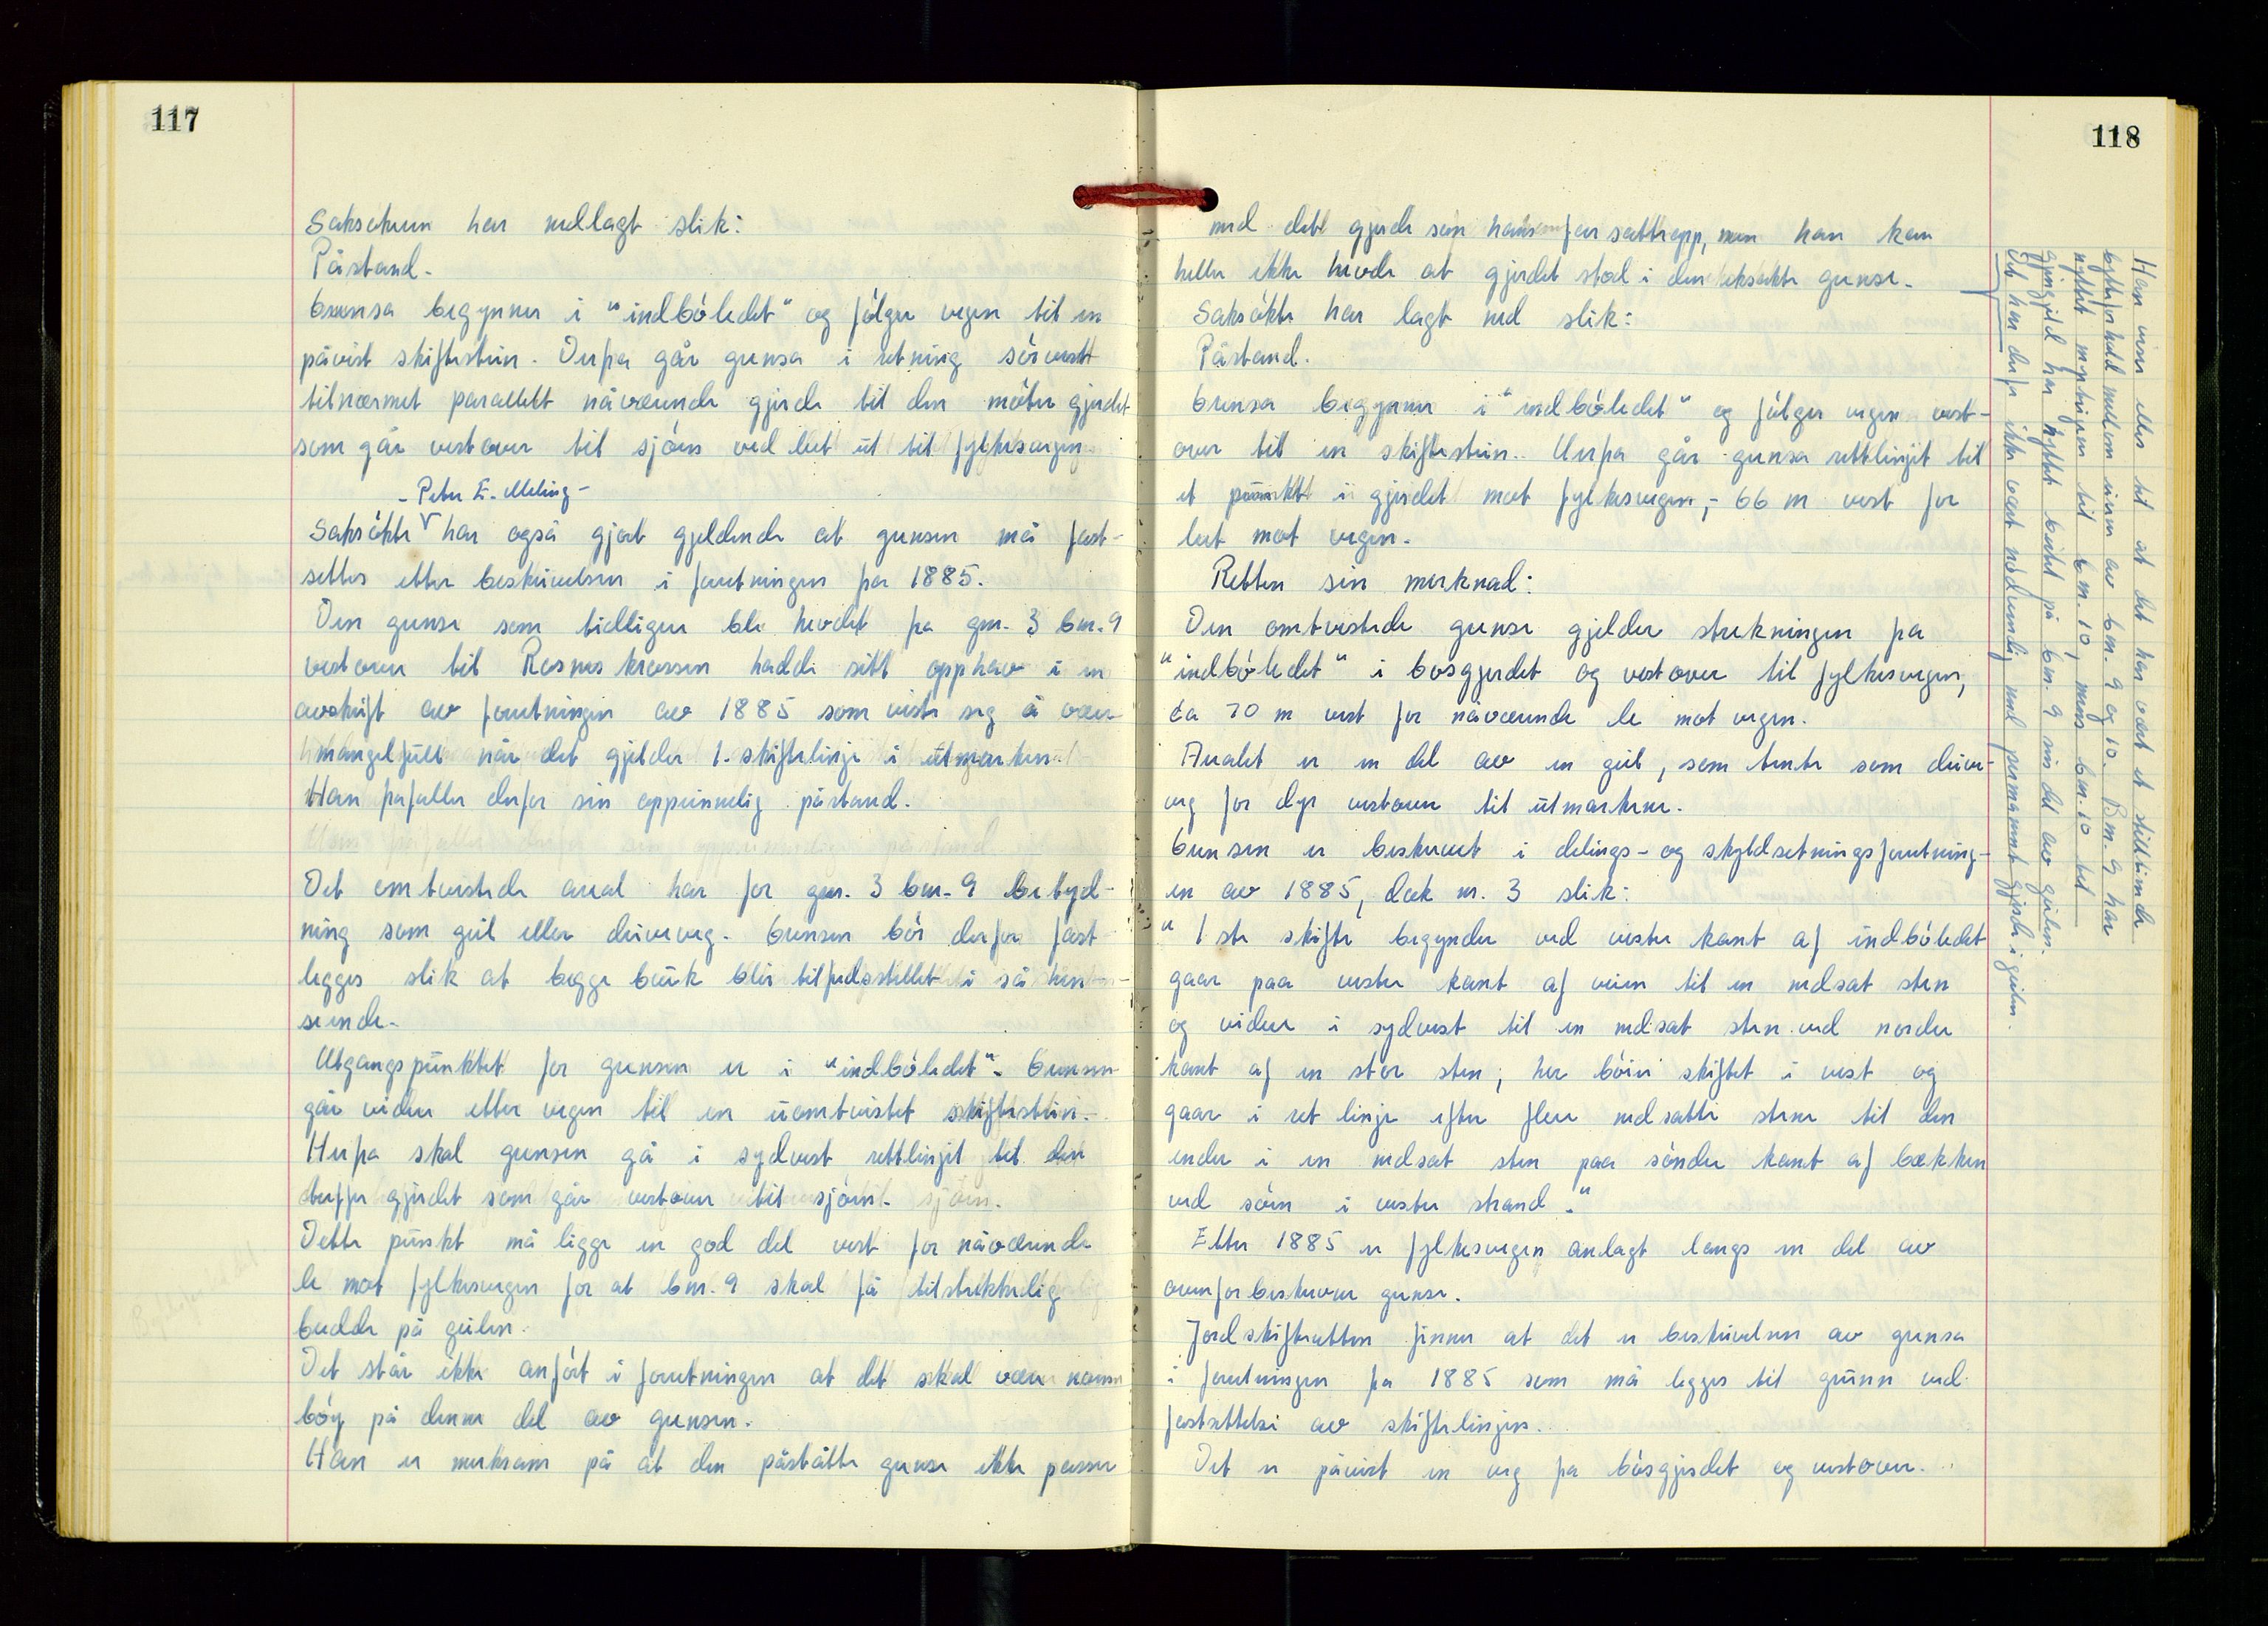 117
Saksøkeren har nedlagt slik:
Påstand.
Grensa begynner i "indböledet" og følger vegen til en
påvist skiftestein. Derfra går grensa i retning sörvest
tilnærmet parallelt nåværende gjerde til den möter gjerdet
som går vestover til sjöen ved leet ut til fylkesvegen.
- Peter E. Meling -
Saksökte har også gjort gjeldende at grensen må fast-
settes etter beskrivelsen i forretningen fra 1885.
Den grense som tidligere ble hevdet fra gnr. 3 bnr. 9
vestover til Rosneskrossen hadde sitt opphav i en
avskrift av forretningen av 1885 som viste seg å være
mangelfull når det gjelder 1. skiftelinje i utmarken.
Han frafaller derfor sin opprinnelig påstand.
Det omtvistede areal har for gnr. 3 bnr. 9 betyd-
ning som geil eller driveveg. Grensen bör derfor fast
legges slik at begge bruk blir tilfredsstillet i så hen-
seende.
Utgangspunktet for grensen er i "indböledet". Grensen
går videre etter vegen til en uomtvistet skiftestein.
Herfra skal grensen gå i sydvest rettlinjet til den
treffer gjerdet som går vestover til sjöen.
Dette punkt må ligge en god del vest for nåværende
le mot fylkesvegen for at bnr. 9 skal få tilstrekkelig
bredde på geilen.
Det står ikke anfört i forretningen at det skal være noen
böy på denne del av grensen.
Han er merksam på at den påståtte grense ikke passer
118
med det gjerde som hans far satte opp, men han kan
heller ikke hevde at gjerdet stod i den eksakte grense.
Saksökte har lagt ned slik:
Påstand.
Grensa begynner i "indböledet" og fölger vegen vest-
over til en skiftestein. Herfra går grensa rettlinjet til
et punkt i gjerdet mot fylkesvegen, - 66 m vest for
leet mot vegen.
Retten sin merknad:
Den omtvistede grense gjelder strekningen fra
"indböledet" i bösgjerdet og vestover til fylkesvegen,
ca 70 m vest for nåværende le mot vegen.
Arealet er en del av en geil, som tente som drive-
veg for dyr vestover til utmarkene.
Grensen er beskrevet i delings- og skyldsetningsforretning-
en av 1885, dok nr. 3 slik:
" 1ste skifte begynder ved vestre kant af indböledet
gaar paa vestre kant af veien til en nedsat sten
og videre i sydvest til en nedsat sten ved nordre
kant af en stor sten; her böier skiftet i vest og
gaar i ret linje efter flere nedsatte stene til den
ender i en nedsat sten paa söndre kant af bækken
ved söen i vestre strand."
Etter 1885 er fylkesvegen anlagt langs en del av
ovenfor beskrevne grense.
Jordskifteretten finner at det er beskrivelsen av grensa
i forretningen fra 1885 som må legges til grunn ved
fastsettelse av skiftelinjen.
Det er påvist en veg fra bösgjerdet og vestover.
Han viser elles til at det har vært et stilltiende
bytteforhold mellom eierne av bnr. 9 og 10. Bnr. 9 har
nyttet myrteigen til bnr. 10, mens bnr. 10 til
gjengjeld har nyttet beitet på bnr. 9 sin del av geilen.
Det har derfor ikke vært nödvendig med permanent gjerde i geilen.